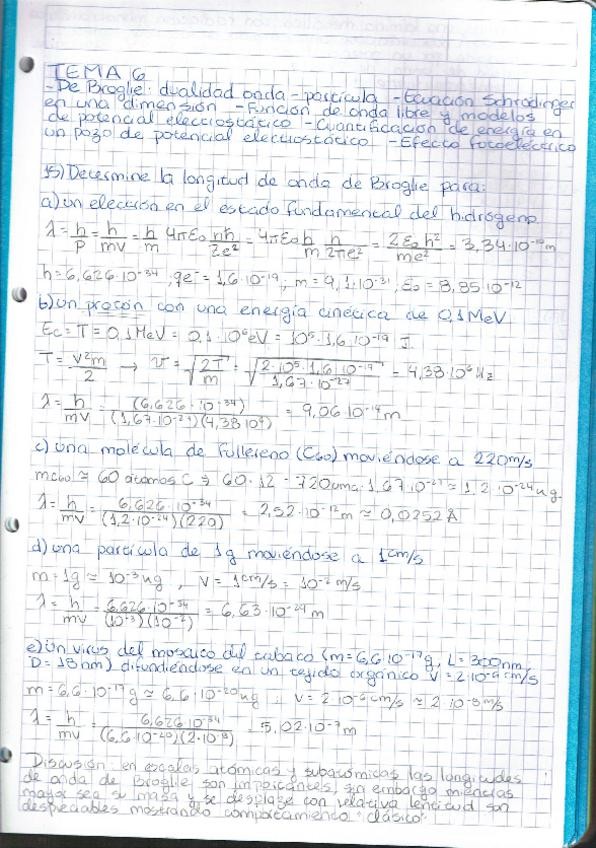 TEMA 6
-De Broglie: dualidad onda-partícula -Ecuación Schrodinger
en una dimensión -Función de onda libre y modelos
de potencial electrostático -Cuantificación de energía en
un pozo de potencial electrostático -Efecto fotoeléctrico
15) Determine la longitud de onda de Broglie para:
a) un electrón en el estado fundamental del hidrógeno
λ = h/p = h/mv = h/m 4πε₀ nħ/Ze² = 4πε₀ħ h/m 1/2πe² = 2ε₀h²/me² = 3,34·10⁻¹⁰ m
h = 6,626·10⁻³⁴ ; qe⁻ = 1,6·10⁻¹⁹ , m = 9,1·10⁻³¹ , ε₀ = 8,85·10⁻¹²
b) un protón con una energía cinética de 0,1 MeV
Ec = T = 0,1 MeV = 0,1·10⁶ eV = 10⁵·1,6·10⁻¹⁹ J
T = v²m/2 → v = √(2T/m) = √(2·10⁵·1,6·10⁻¹⁹/1,67·10⁻²⁷) = 4,38·10⁶ Hz
λ = h/mv = (6,626·10⁻³⁴)/(1,67·10⁻²⁷)(4,38·10⁶) = 9,06·10⁻¹⁴ m
c) una molécula de fullereno (C60) moviéndose a 220 m/s
mC60 ≈ 60 átomos C ⇒ 60·12 = 720 uma·1,67·10⁻²⁷ = 1,2·10⁻²⁴ kg
λ = h/mv = 6,626·10⁻³⁴/(1,2·10⁻²⁴)(220) = 2,52·10⁻¹² m ≈ 0,0252 Å
d) una partícula de 1g moviéndose a 1 cm/s
m = 1g ≈ 10⁻³ kg , v = 1 cm/s = 10⁻² m/s
λ = h/mv = 6,626·10⁻³⁴/(10⁻³)(10⁻²) = 6,63·10⁻²⁹ m
e) un virus del mosaico del tabaco (m = 6,6·10⁻¹⁷ g, L = 300nm,
D = 18nm) difundiéndose en un tejido orgánico v = 2·10⁻⁶ cm/s
m = 6,6·10⁻¹⁷ g ≈ 6,6·10⁻²⁰ kg ; v = 2·10⁻⁶ cm/s ≈ 2·10⁻⁸ m/s
λ = h/mv = 6,626·10⁻³⁴/(6,6·10⁻²⁰)(2·10⁻⁸) = 5,02·10⁻⁷ m
Discusión: en escalas atómicas y subatómicas las longitudes
de onda de Broglie son importantes, sin embargo mientras
mayor sea su masa y se desplaze con relativa lentitud son
despreciables mostrando comportamiento "clásico".